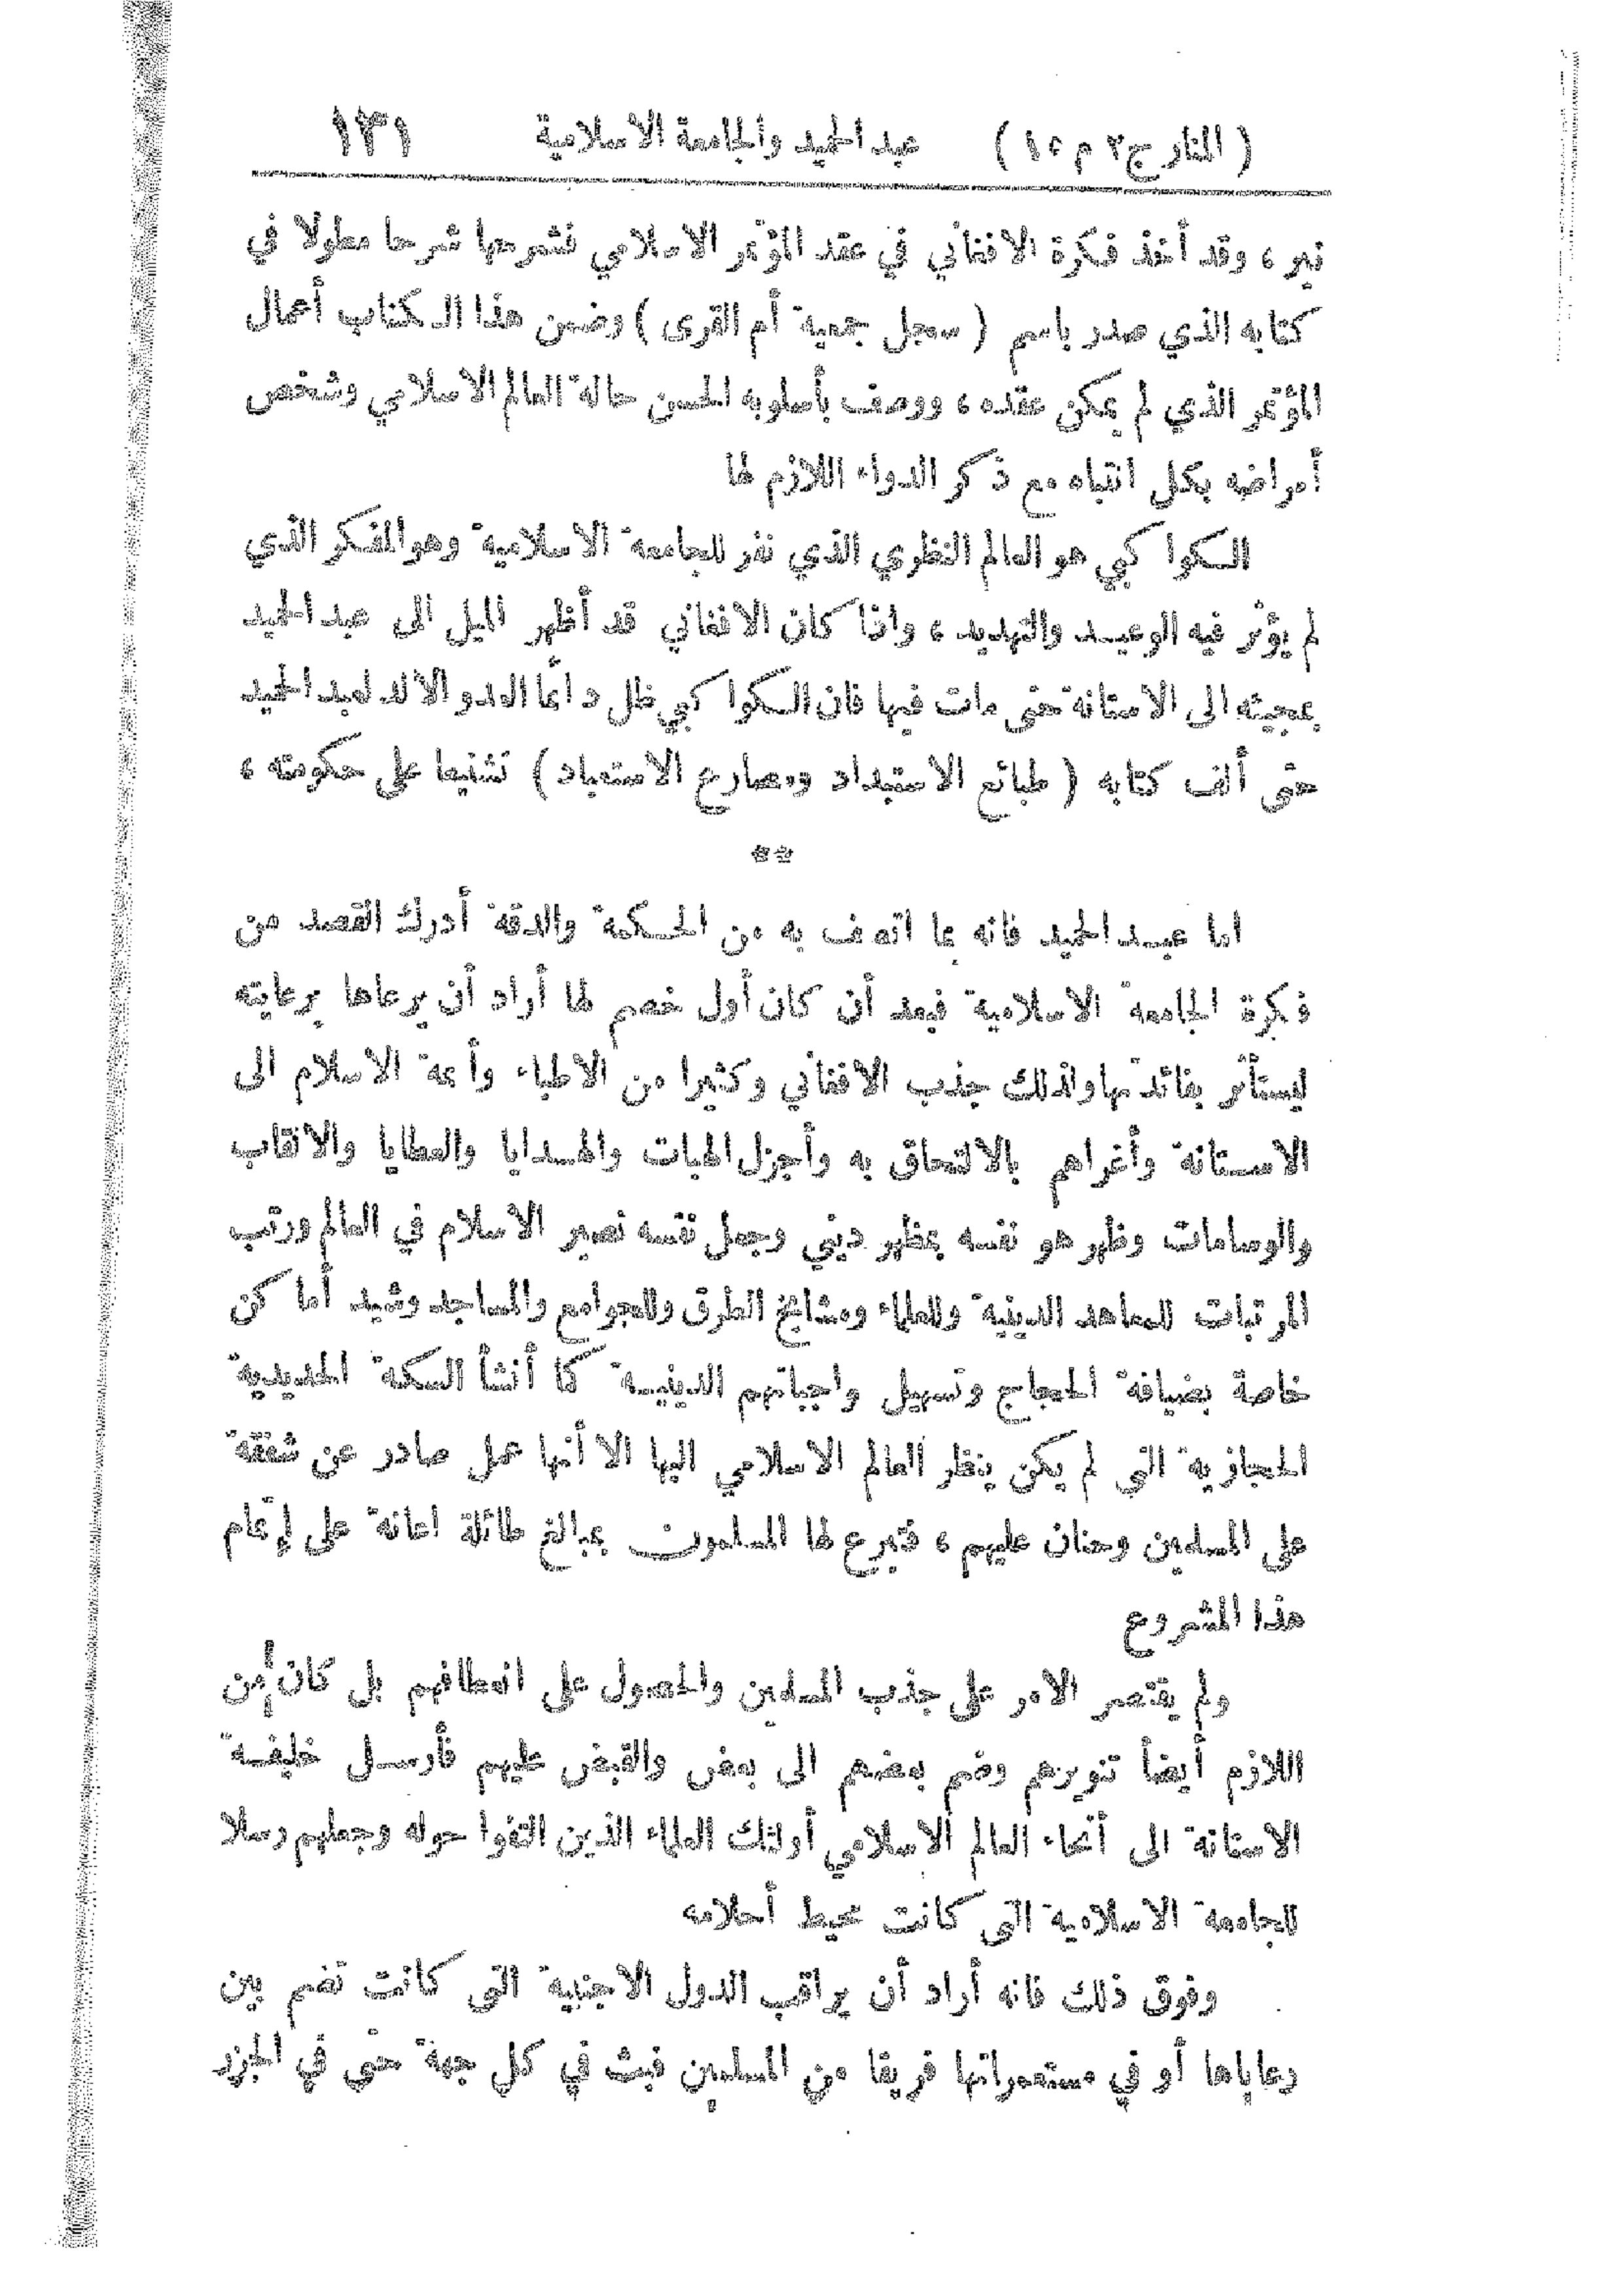 (المنار ج ٢ م ١٥) عبد الحميد والجامعة الاسلامية ١٣١
نير ، وقد أخذ فكرة الافغاني في عقد المؤتمر الاسلامي فشرحها شرحا مطولا في
كتابه الذي صدر باسم ( سجل جمعية أم القرى ) وضمن هذا الكتاب أعمال
المؤتمر الذي لم يمكن عقده ، ووصف بأسلوبه الحسن حالة العالم الاسلامي وشخص
أمراضه بكل انتباه مع ذكر الدواء اللازم لها
الكواكبي هو العالم النظري الذي نذر للجامعة الاسلامية وهو المفكر الذي
لم يؤثر فيه الوعيد والتهديد ، واذا كان الافغاني قد أظهر الميل الى عبد الحميد
بمجيئه الى الاستانة حتى مات فيها فان الكواكبي ظل دائما العدو الألد لعبد الحميد
حتى ألف كتابه ( طبائع الاستبداد ومصارع الاستعباد ) تشنيعا على حكومته ،
**
اما عبد الحميد فانه بما اتصف به من الحكمة والدقة أدرك القصد من
فكرة الجامعة الاسلامية فبعد أن كان أول خصم لها أراد أن يرعاها برعايته
ليستأثر بفائدتها ولذلك جذب الافغاني وكثيرا من الاطباء وأئمة الاسلام الى
الاستانة وأغراهم بالالتحاق به وأجزل الهبات والهدايا والعطايا والالقاب
والوسامات وظهر هو نفسه بمظهر ديني وجعل نفسه نصير الاسلام في العالم ورتب
المرتبات للمعاهد الدينية وللعلماء ومشايخ الطرق وللجوامع والمساجد وشيد أماكن
خاصة بضيافة الحجاج وتسهيل واجباتهم الدينية كما أنشأ السكة الحديدية
الحجازية التي لم يكن ينظر العالم الاسلامي اليها الا أنها عمل صادر عن شفقة
على المسلمين وحنان عليهم ، فتبرع لها المسلمون بمبالغ طائلة اعانة على إتمام
هذا المشروع
ولم يقتصر الامر على جذب المسلمين والحصول على انعطافهم بل كان من
اللازم أيضاً تنويرهم وضم بعضهم الى بعض والقبض عليهم فأرسل خليفة
الاستانة الى أنحاء العالم الاسلامي أولئك العلماء الذين التفوا حوله وجعلهم رسلا
للجامعة الاسلامية التى كانت محيط أحلامه
وفوق ذلك فانه أراد أن يراقب الدول الاجنبية التى كانت تضم بين
رعاياها أو في مستعمراتها فريقا من المسلمين فبث في كل جهة حتى في الجزر